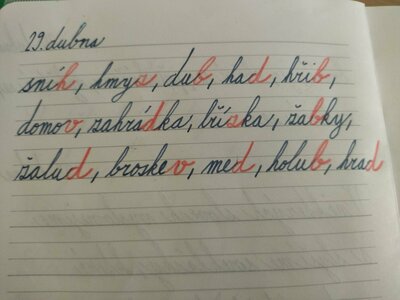 29. dubna
sníh, hmys, dub, had, hřib,
domov, zahrádka, bříska, žabky,
žalud, broskev, med, holub, hrad